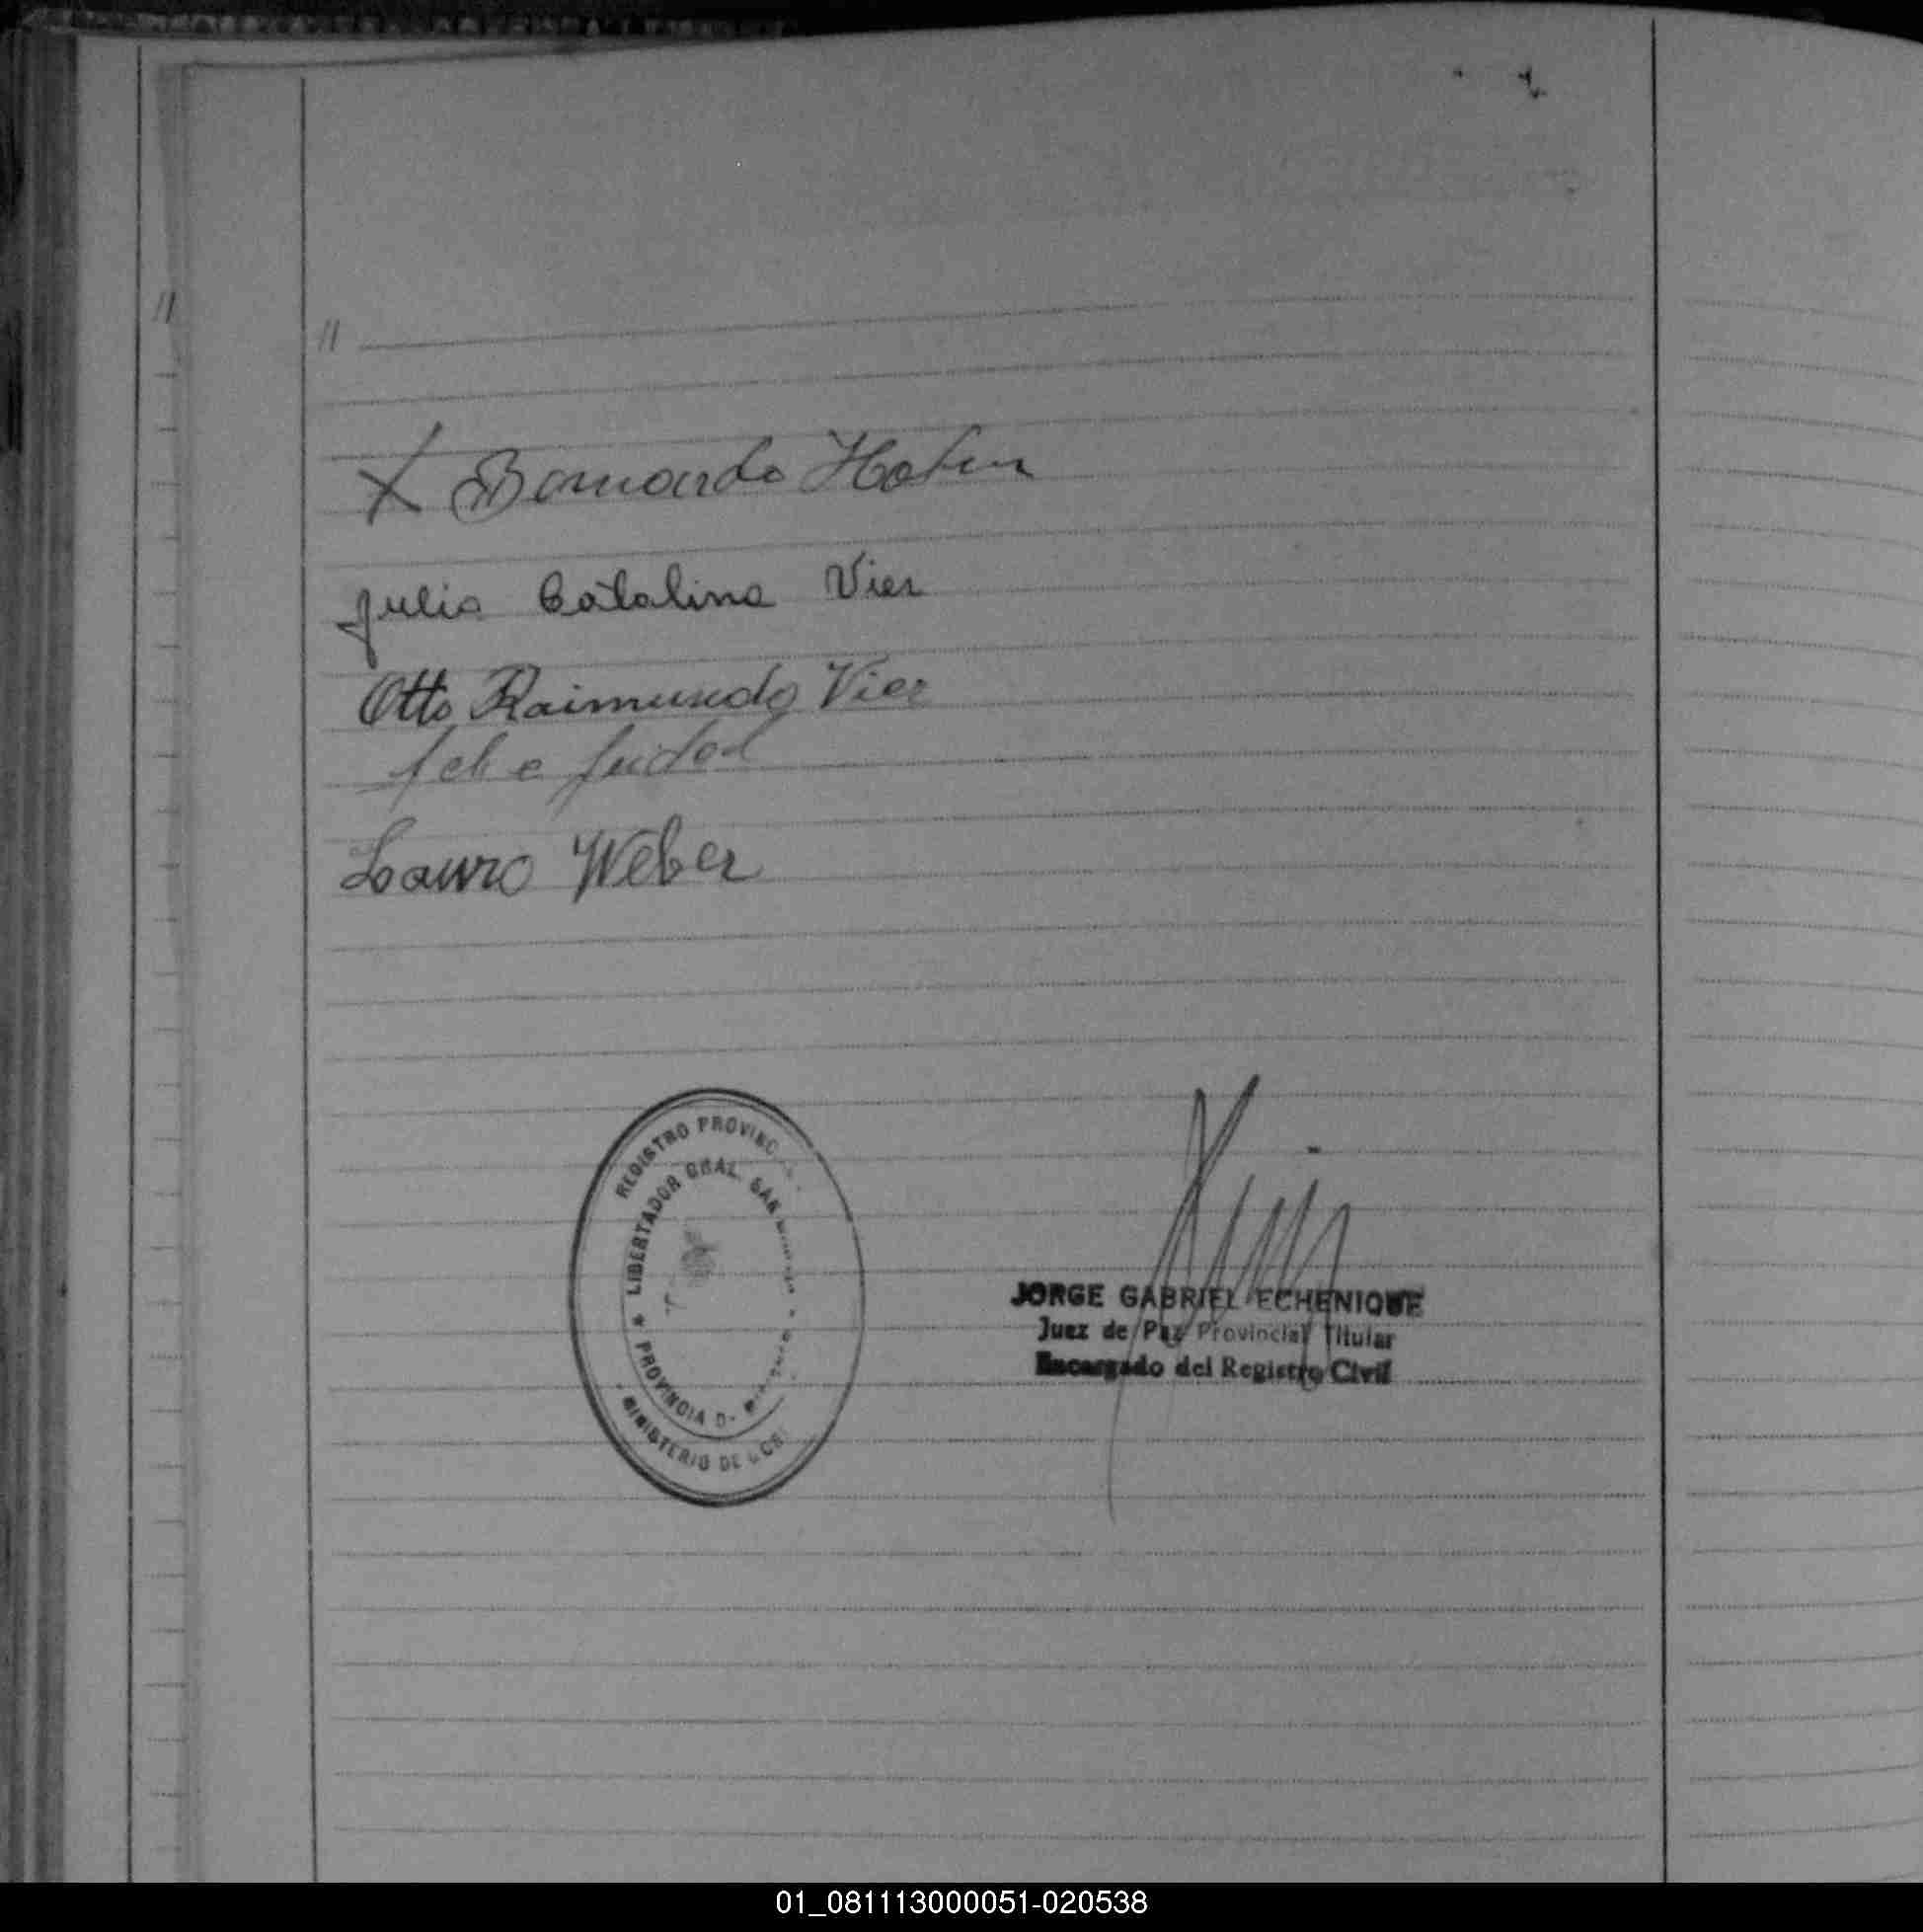 "
"
X Bernardo Hofer
Julia Catalina Vier
Otto Raimundo Vier
Lauro Weber
REGISTRO PROVINC
LIBERTADOR GRAL. SAN
PROVINCIA D
MINISTERIO DE
JORGE GABRIEL ECHENIQUE
Juez de Paz Provincial Titular
Encargado del Registro Civil
01_081113000051-020538